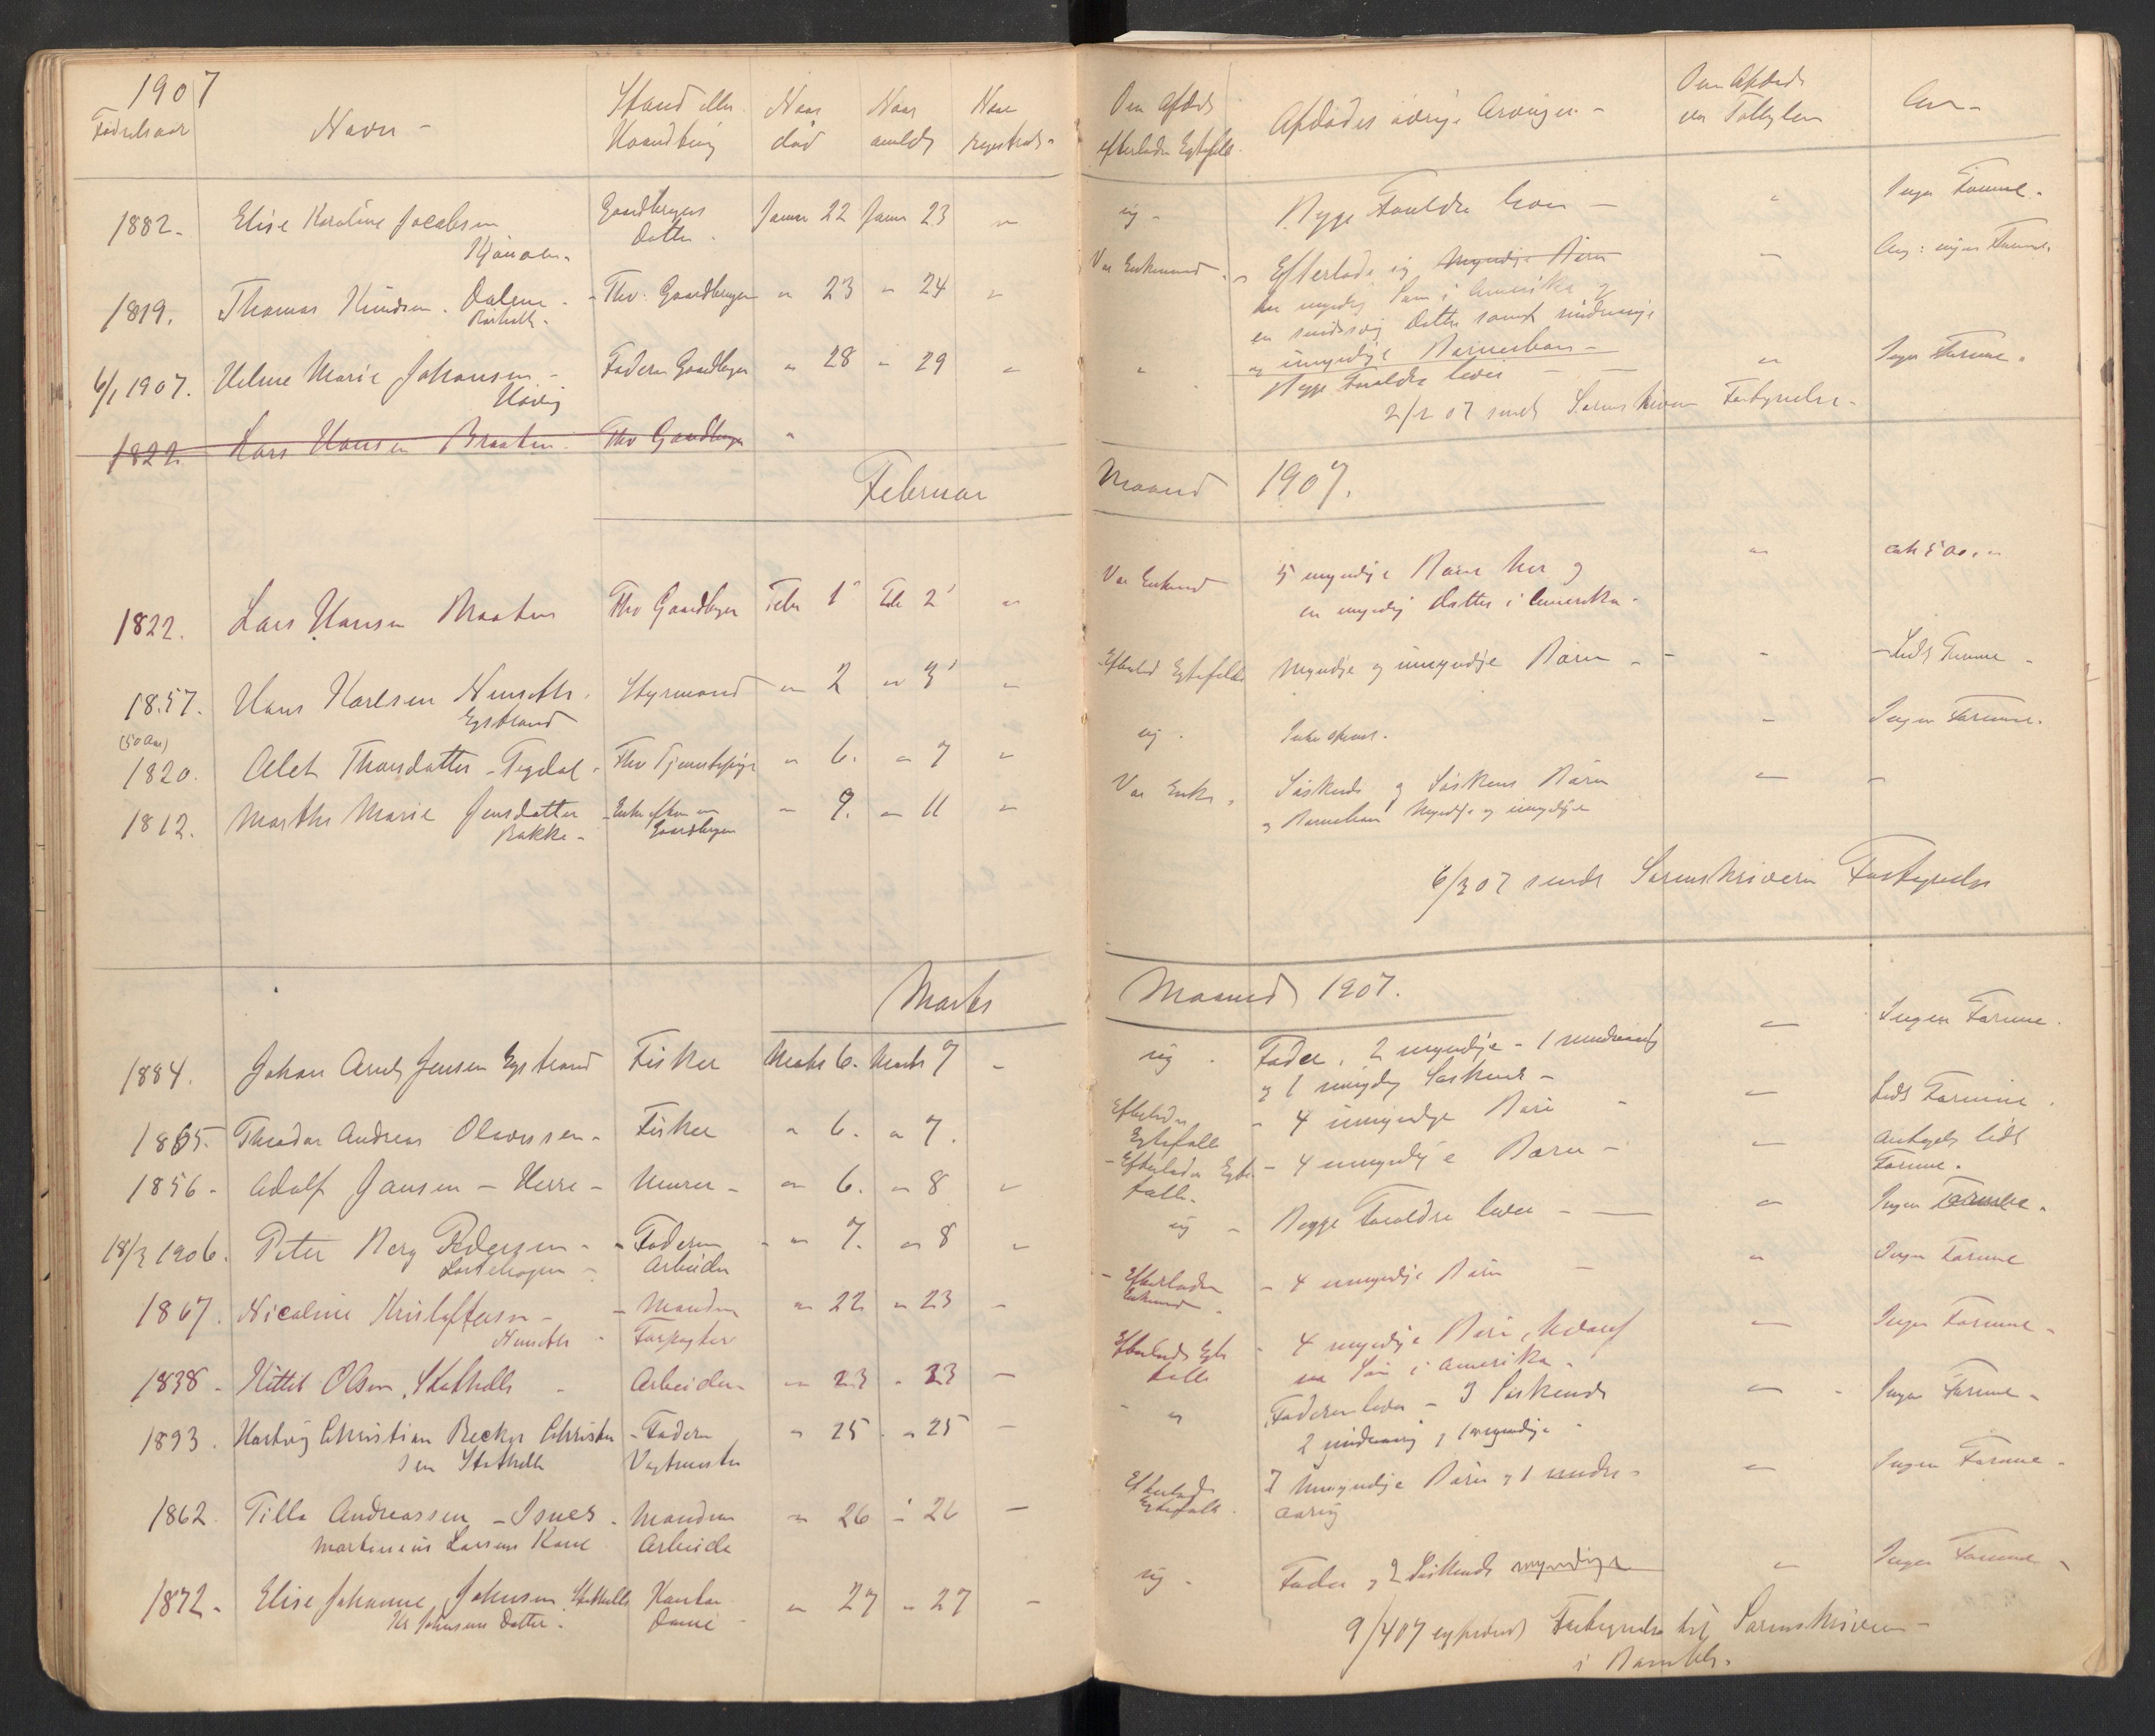 1907
Fødselsaar
Navn -
Stand eller
Haandtering
Naar
død
Naar
anmeldt
Naar
registreret
Om Afdøde
efterlader Egtefelle
Afdødes øvrige Arvinger. -
Om Afdøde
var
An-
1882. Elise Karoline Jacobsen
Gaardbrugers
Datter.
Januar 22 Januar 23 "
ei - Begge Forældre lever - " Ingen Formue.
1819. Thomas Knudsen. Dalene - Fhv. Gaardbruger " 23 " 24 "
Var Enkemand. Efterlader ig Myndige Børn
en myndig Søn i Amerika og
en sindssvag Datter samt mindreaarige
og umyndige Barnebørn -
" Ang: ingen Formue.
6/1 1907. Helene Marie Johansen -
Faderen Gaardbruger " 28 " 29 "
" Begge Forældre lever - " Ingen Formue.
2/2 07 sendt Sorenskriveren Fortegnelse -
1822 Lars Hansen Braaten Fhv Gaardbruger "
Februar Maaned 1907.
1822. Lars Hansen Braaten Fhv Gaardbruger Febr 1 Feb 2 "
Var Enkemd 5 myndige Børn her og
en myndig Datter i Amerika.
"
1857. Hans Karlsen
Eystrand
Styrmand " 2 " 3 "
Efterlod Egtefelle Myndige og umyndige Børn - - " - Lidt Formue -
(50 Aar)
1820. Alet Thorsdatter - Tegdal - Fhv Tjenestepige " 6. " 7 "
ej. Intet - Ingen Formue.
1812. Marthe Marie Jensdatter
Bakke -
Enke efter en
Gaardbruger
" 9. " 11 "
Var Enke. Søskende og Søskende Børn
og Barnebørn Myndige og umyndige
" "
6/3 07 sendt Sorenskriveren Fortegnelse
Marts Maaned 1907.
1884. Johan Arndt Jensen Eystrand Fisker Marts 6. Marts 7 -
ej. Fader, 2 myndige - 1 mindreaarig
og 1 umyndig Søskende -
" Ingen Formue.
1865. Theodor Andreas Olavessen - Fisker " 6. " 7.
Efterlader
Egtefælle
- 4 umyndige Børn - " Lidt Formue.
1856 - Adolf Jansen - Herre - Murer - " 6. " 8 "
- Efterlader Egte-
fælle.
- 4 umyndige Børn - " Antagelig lidt
Formue.
18/3 1906. Peter Berg Pedersen -
- Faderen
Arbeider
" 7. " 8 "
ej - Begge Forældre lever - " Ingen Formue.
1867. Nicoline Kristoffersen -
- Manden
Forpagter
" 22 " 23 -
- Efterlader
Enkemand.
- 4 umyndige Børn - " Ingen Formue
1838 - Kittil Olsen, Stathelle - Arbeider - " 23 " 23 -
Efterlader Egte
fælle
- 4 myndige Børn, hvoraf
en Søn i Amerika.
" Ingen Formue -
1893. Hartvig Christian Becker Christen
sen Stathelle
- Faderen
Vagtmester
" 25. " 25 -
- " Faderen lever - 3 Søskende
2 mindreaarig og 1 myndige -
" - Ingen Formue -
1862. Tilla Andreassen - Isnes -
Martinius Larsens Kone
Manden
Arbeider
" 26 " 26 -
Efterlader
Egtefælle.
3 Umyndige Børn og 1 mindre-
aarig
" Ingen Formue -
1872 - Elise Johanne Johnsen. Stathelle
Kr Johnsens Datter.
Kontor-
Dame -
" 27 " 27 -
ej - Fader og 2 Søskende myndige " Ingen Formue -
9/4 07 Fortegnelse til Sorenskriveren -
i Bamble.